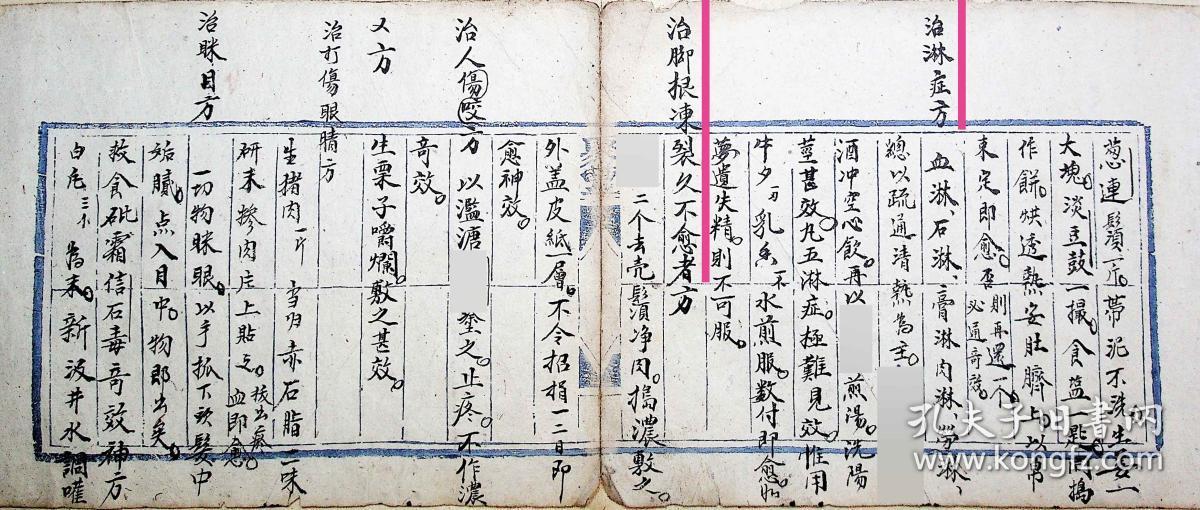 葱連鬚一斤帶泥不洗生姜一
大塊淡豆鼓一撮食盐一匙同搗
作餅烘透熱安肚臍上以帛
束定即愈否則再還一个必通奇效
治淋症方
血淋石淋膏淋肉淋勞淋
總以疏通清熱為主
酒冲空心飲再以 煎湯洗陽
莖甚效凡五淋症極難見效惟用
牛夕 乳香 水煎服数付即愈如
夢遺失精則不可服
治脚根凍裂久不愈者方
二个去壳鬚净肉搗濃敷之
外盖皮紙一層不令招損一二日即
愈神效
治人傷咬方 以濫溏 塗之止疼不作濃
奇效
又方
生栗子嚼爛敷之甚效
治打傷眼睛方
生猪肉一片 当归 赤石脂二味
研末摻肉庄上貼之 拔出瘀血即愈
治眯目方
一切物眯眼以手抓下头髮中
垢膩点入目中物即出矣
救食砒霜信石毒奇效神方
白凡三个為末新汲井水調嚾
孔夫子旧書网
www.kongfz.com